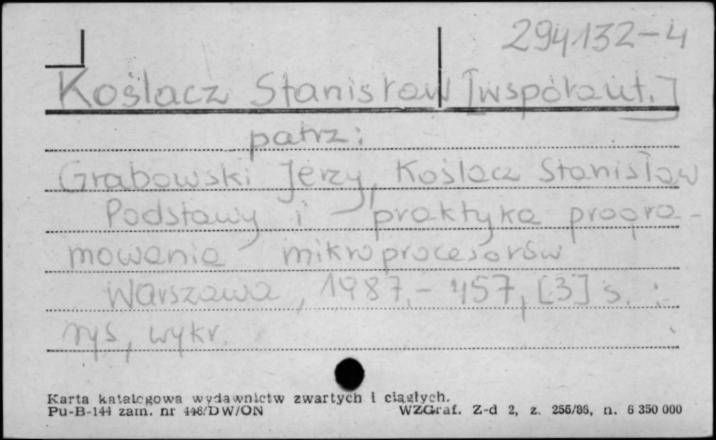 294132-4
Koślacz Stanisław [współaut.]
patrz:
Grabowski Jerzy, Koślacz Stanisław
Podstawy i praktyka progra-
mowania mikroprocesorów
Warszawa, 1987.- 457, [3] s. :
rys, wykr.
Karta katalogowa wydawnictw zwartych i ciągłych.
Pu-B-144 zam. nr 448/DW/ON WZGraf. Z-d 2, z. 256/86, n. 6 350 000